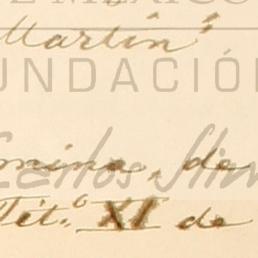 Martín"
FUNDACIÓN
mina, de
Carlos Slim
Tít.º XI de